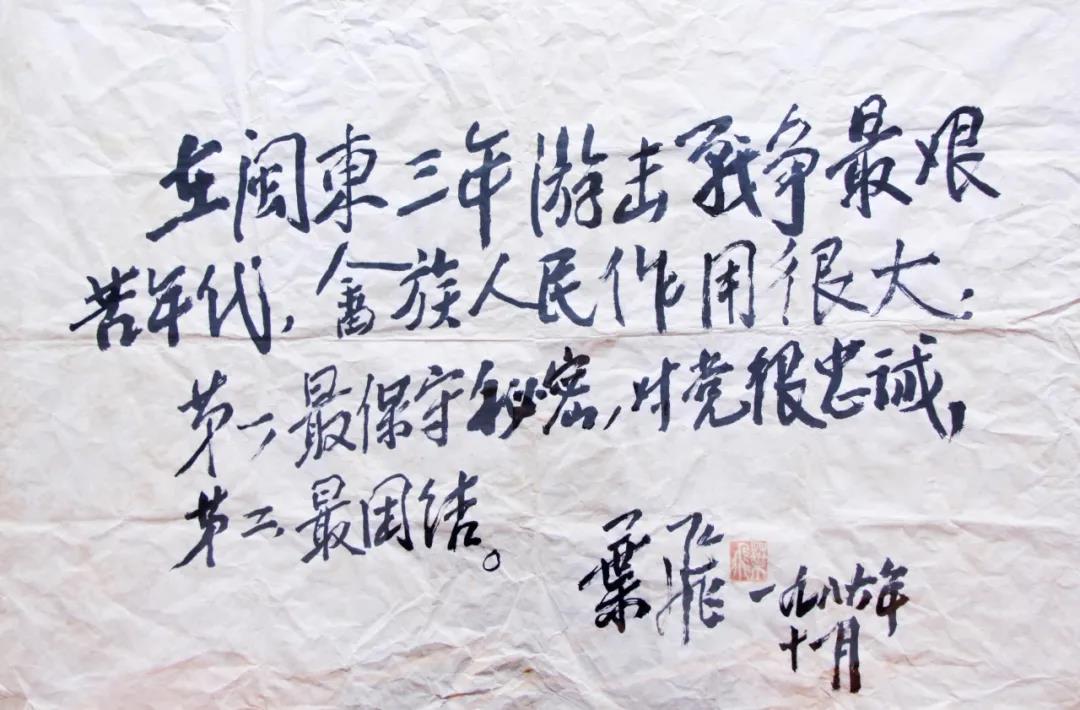 在闽東三年游击戰争最艰
苦年代，畲族人民作用很大：
第一最保守秘密，对党很忠诚，
第二最团结。
葉飛
一九八六年
十一月